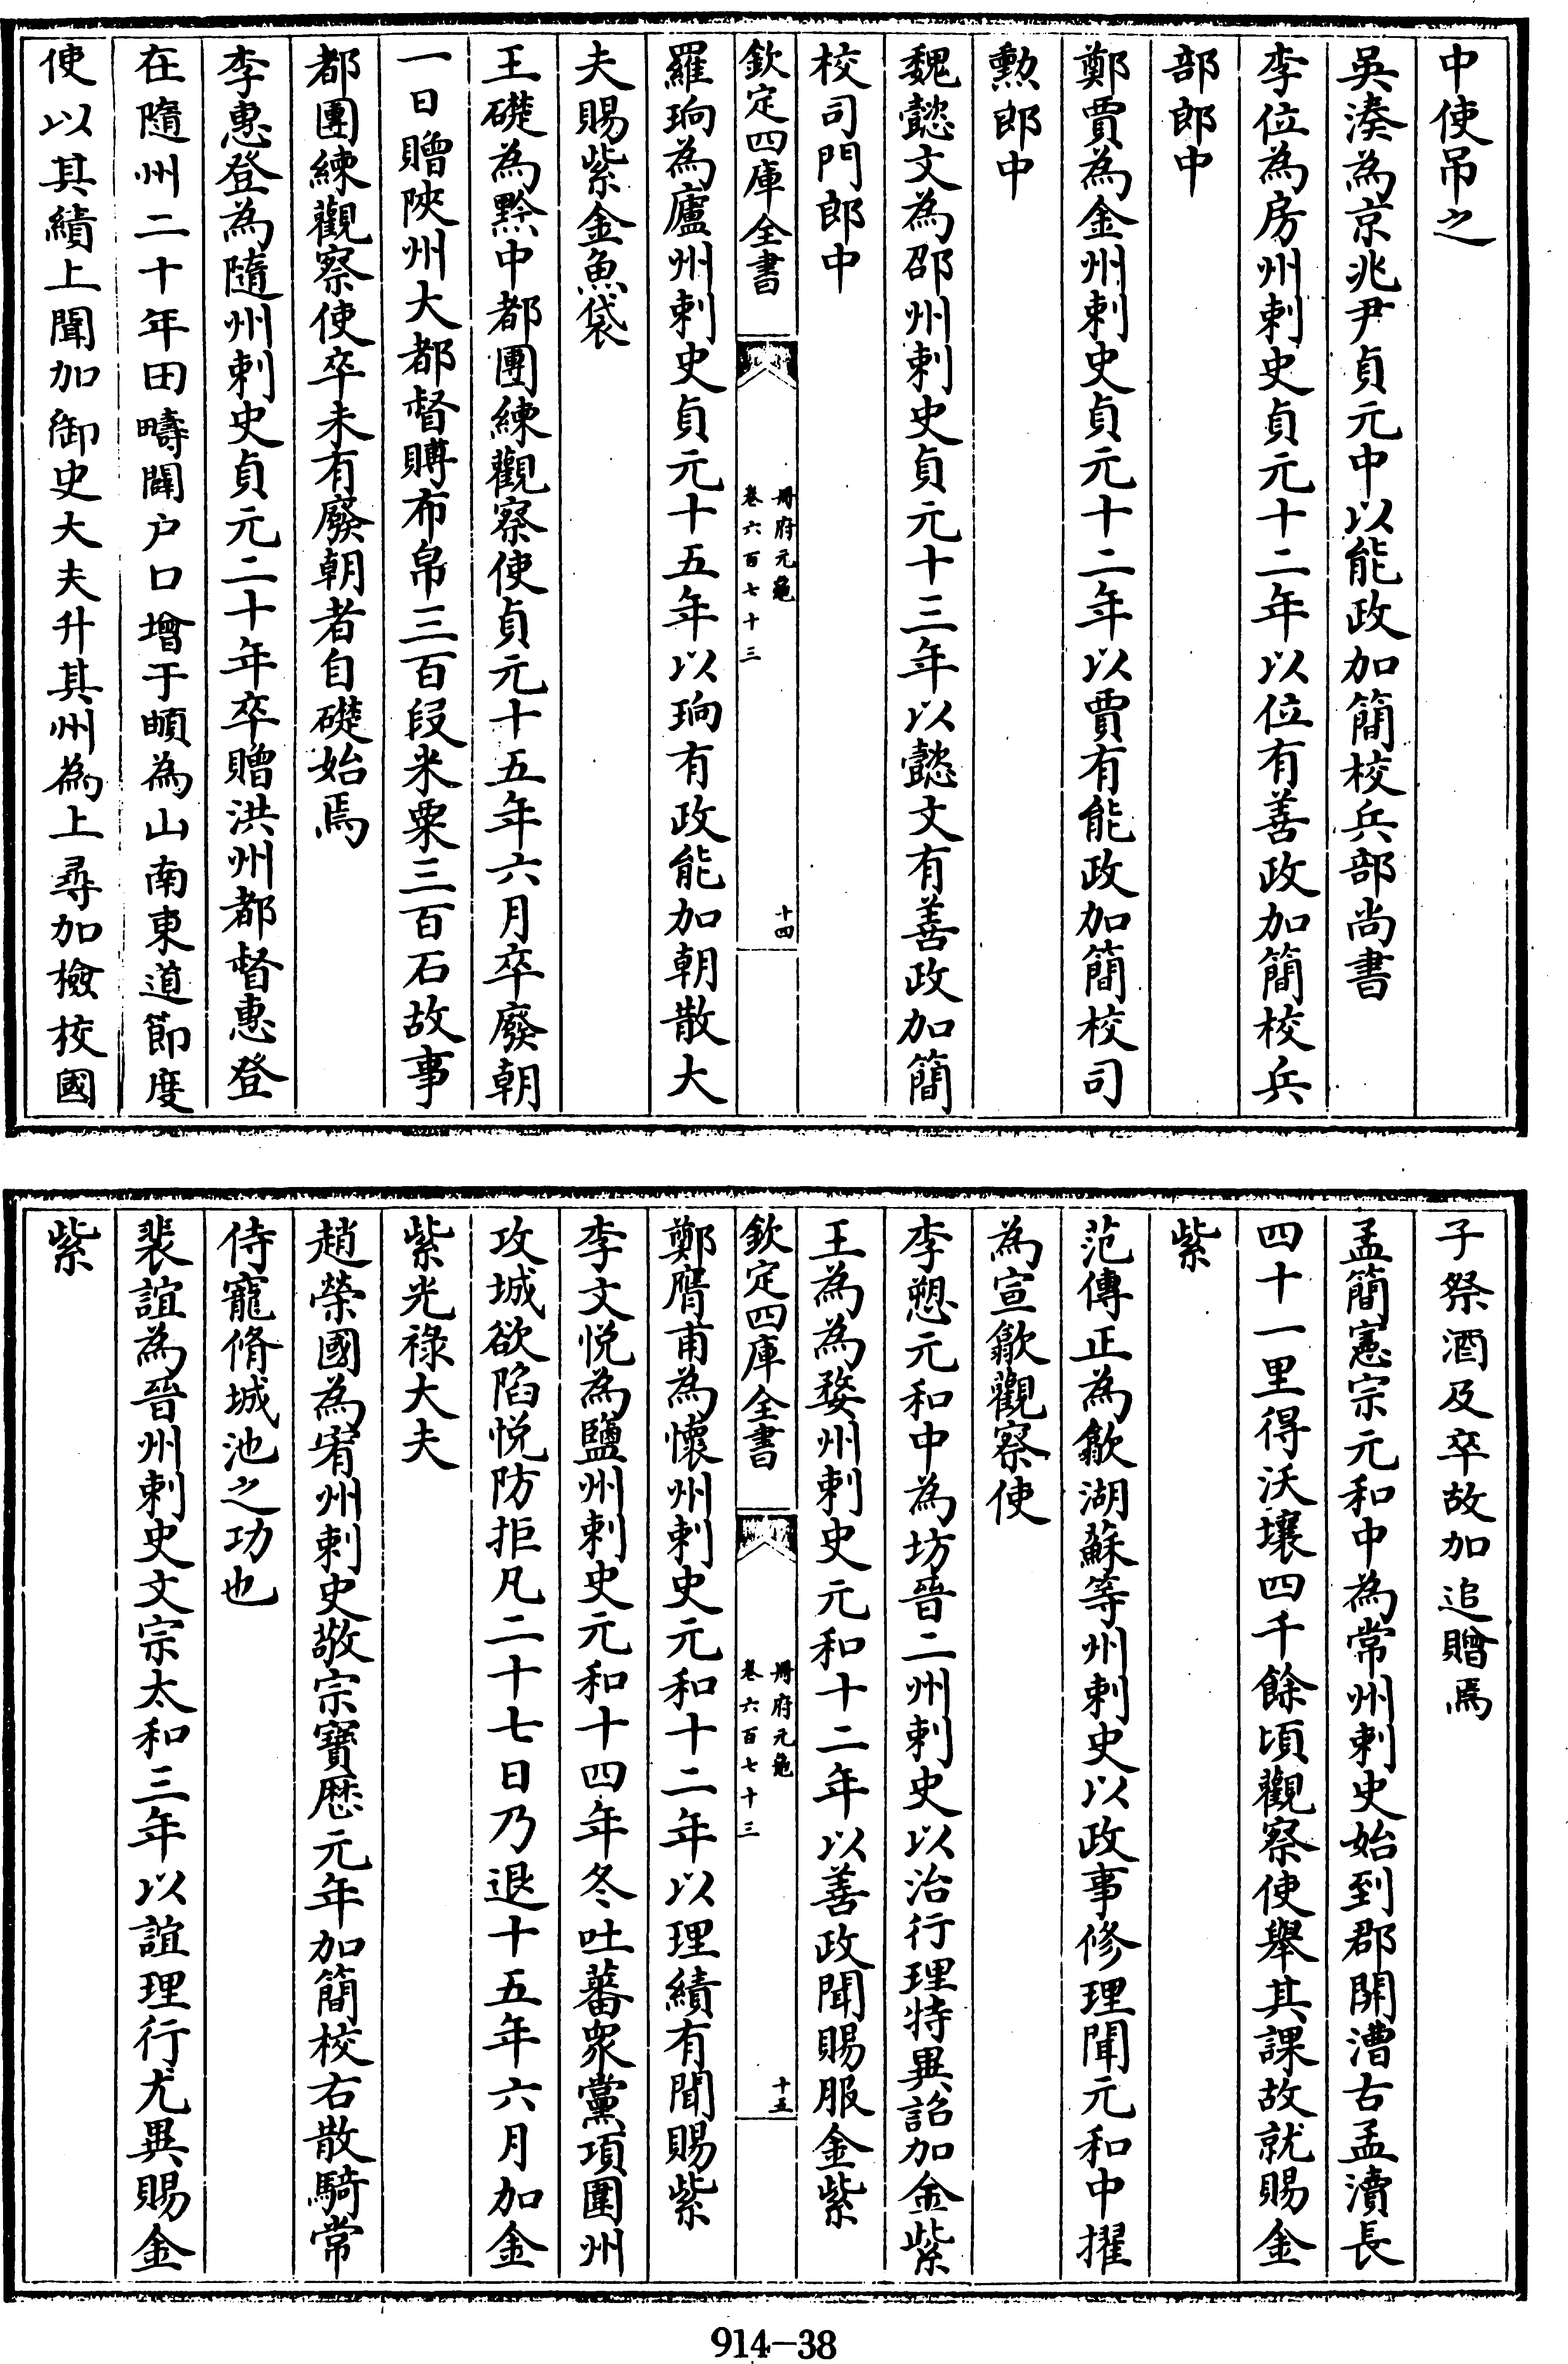 中使吊之
吳湊為京兆尹貞元中以能政加簡校兵部尚書
李位為房州刺史貞元十二年以位有善政加簡校兵
部郎中
鄭賈為金州刺史貞元十二年以賈有能政加簡校司
勲郎中
魏懿文為邵州刺史貞元十三年以懿文有善政加簡
校司門郎中
欽定四庫全書
冊府元龜
卷六百七十三
十四
羅珦為廬州刺史貞元十五年以珦有政能加朝散大
夫賜紫金魚袋
王礎為黔中都團練觀察使貞元十五年六月卒廢朝
一日贈陜州大都督賻布帛三百段米粟三百石故事
都團練觀察使卒未有廢朝者自礎始焉
李惠登為隨州刺史貞元二十年卒贈洪州都督惠登
在隨州二十年田疇闢户口增于頔為山南東道節度
使以其績上聞加御史大夫升其州為上尋加檢校國
子祭酒及卒故加追贈焉
孟簡憲宗元和中為常州刺史始到郡開漕古孟瀆長
四十一里得沃壤四千餘頃觀察使舉其課故就賜金
紫
范傳正為歙湖蘇等州刺史以政事修理聞元和中擢
為宣歙觀察使
李愬元和中為坊晉二州刺史以治行理特異詔加金紫
王為為婺州刺史元和十二年以善政聞賜服金紫
欽定四庫全書
冊府元龜
卷六百七十三
十五
鄭膺甫為懷州刺史元和十二年以理績有聞賜紫
李文悦為鹽州刺史元和十四年冬吐蕃衆黨項圍州
攻城欲陷悦防拒凡二十七日乃退十五年六月加金
紫光祿大夫
趙榮國為宥州刺史敬宗寶歴元年加簡校右散騎常
侍寵脩城池之功也
裴誼為晉州刺史文宗太和三年以誼理行尤異賜金
紫
914-38